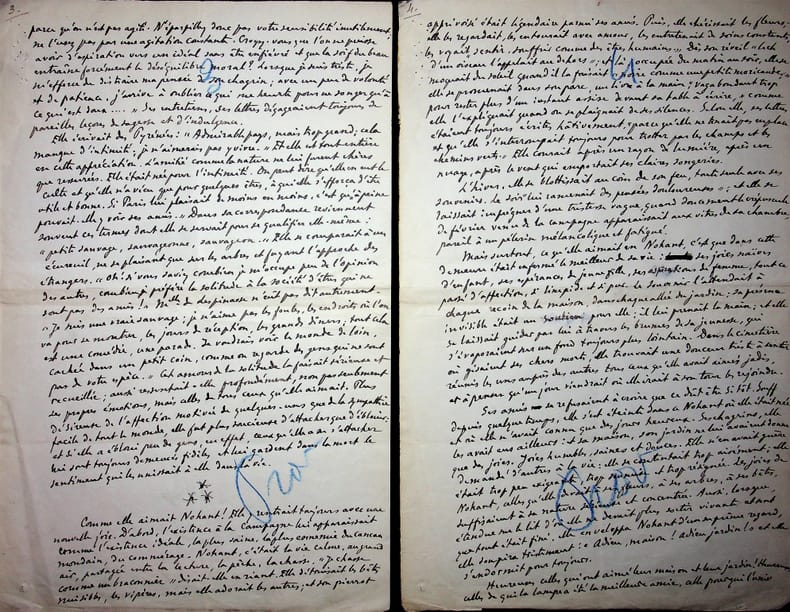 3.
parce qu'on n'est pas agité. N'éparpillez donc pas votre sensibilité inutilement,
ne l'usez pas par une agitation constante. Croyez-vous que l'on ne puisse
avoir d'aspiration vers un idéal sans être enfiévré et que la soif du beau
entraîne forcément le déséquilibre moral? Lorsque je suis triste, je
m'efforce de distraire ma pensée de son chagrin, avec un peu de volonté
et de patience, j'arrive à oublier ce qui me heurte pour ne songer qu'à
ce qui sera .... » Ses entretiens, ses lettres dégageaient toujours de
pareilles leçons de sagesse et d'indulgence.
Elle écrivait des Pyrénées: « Admirable pays, mais trop grand; cela
manque d'intimité, je n'aimerais pas y vivre. » Elle est tout entière
en cette appréciation. L'amitié comme la nature ne lui furent chères
que resserrées. Elle était née pour l'intimité. On peut dire qu'elle en eut le
culte et qu'elle n'a vécu que pour quelques êtres, à qui elle s'efforça d'être
utile et bonne. Si Paris lui plaisait de moins en moins, c'est qu'à peine
pouvait-elle y voir ses amis. » Dans sa correspondance reviennent
souvent ces termes dont elle se servait pour se qualifier elle-même:
« petit sauvage, sauvageonne, sauvageon. » Elle se comparait à un
écureuil, ne se plaisant que sur les arbres et fuyant l'approche des
étrangers. « Oh! si vous saviez combien je m'occupe peu de l'opinion
des autres, combien je préfère la solitude à la société d'êtres qui ne
sont pas des amis. » Melle de Lespinasse n'eût pas dit autrement.
« Je suis une vraie sauvage; je n'aime pas les foules, les endroits où l'on
va pour se montrer, les jours de réception, les grands dîners; tout cela
est une comédie, une parade. Je voudrais voir le monde de loin,
cachée dans un petit coin, comme on regarde des gens qui ne sont
pas de votre espèce. » Cet amour de la solitude la faisait sérieuse et
recueillie; aussi ressentait-elle profondément, non pas seulement
ses propres émotions, mais celles de tous ceux qu'elle aimait. Plus
désireuse de l'affection motivée de quelques-uns que de la sympathie
facile de tout le monde, elle fut plus soucieuse d'attacher que d'éblouir:
et si elle a ébloui peu de gens, en effet, ceux qu'elle a su s'attacher
lui sont toujours demeurés fidèles et lui gardent dans la mort le
sentiment qui les unissait à elle dans la vie.
Comme elle aimait Nohant! Elle y rentrait toujours avec une
nouvelle joie. D'abord, l'existence à la campagne lui apparaissait
comme l'existence idéale, la plus saine, la plus éloignée du cancan
mondain, du commérage. Nohant, c'était la vie calme, au grand
air, partagée entre la lecture, la pêche, la chasse. « Je chasse
comme un braconnier » disait-elle en riant. Elle détruisait les bêtes
nuisibles, les vipères, mais elle adorait les autres; et son pierrot
4.
apprivoisé était légendaire parmi ses amis. Puis, elle chérissait les fleurs,
elle les regardait, les entourait avec amour, les entretenait de soins constants,
les voyait sentir, souffrir comme des êtres humains. » Dès son réveil « le cri
d'un oiseau l'appelait au dehors »; et là occupée du matin au soir, elle se
moquait du soleil quand il la faisait comme une petite moricaude,
elle se promenait dans son parc, un livre à la main; vagabondant trop
pour rester plus d'un instant assise devant sa table à écrire, » comme
elle l'expliquait quand on se plaignait de ses silences. Selon elle, ses lettres
étaient toujours écrites hâtivement, parce qu'elle ne tenait pas en place
et qu'elle s'interrompait toujours pour trotter par les champs et les
chemins verts. » Elle courait après un rayon de lumière, après un
nuage, après le vent qui emportait ses claires songeries.
L'hiver, elle se blottissait au coin de son feu, toute seule avec ses
souvenirs. Le soir lui ramenait des pensées douloureuses »; et elle se
laissait imprégner d'une tristesse vague, quand doucement le crépuscule
de février venu de la campagne apparaissait aux vitres de sa chambre,
pareil à un pèlerin mélancolique et fatigué.
Mais surtout, ce qu'elle aimait en Nohant, c'est que dans cette
demeure était enfermé le meilleur de sa vie: ses joies naïves
d'enfant, ses espérances de jeune fille, ses de femme, tout ce
passé d'affection, si limpide et si pur. Le souvenir l'attendait à
chaque recoin de la maison, dans chaque allée du jardin; sa présence
invisible était un soutien pour elle; il lui prenait la main; et elle
se laissait guider par lui à travers les brumes de sa jeunesse, qui
s'évaporaient sur un fond toujours plus lointain. Dans le cimetière
où gisaient ses chers morts, elle trouvait une douceur triste à sentir
réunis les uns auprès des autres tous ceux qu'elle avait aimés jadis,
et à penser qu'un jour viendrait où elle irait à son tour les rejoindre.
Ses amis se refusaient à croire que ce dût être si tôt. Souffrante
depuis quelque temps, elle s'est éteinte dans ce Nohant où elle était née
et où elle n'avait connu que des jours heureux. Ses chagrins, elle
les avait eus ailleurs; et sa maison, son jardin ne lui avaient donné
que des joies. Joies humbles, saines et douces. Elle n'en avait guère
demandé d'autres à la vie: elle se contentait trop aisément; elle
était trop peu exigeante, trop et trop résignée. Les joies de
Nohant, celles qu'elle devait à ses fleurs, à ses arbres, à ses bêtes,
suffisaient à sa nature et concentrée. Aussi, lorsque
étendue sur le lit d'où elle ne devait plus sortir vivante et sentant
que tout était fini, elle enveloppa Nohant d'un suprême regard,
elle soupira tristement: « Adieu, maison! adieu jardin! » et elle
s'endormit pour toujours.
Heureux celles qui ont aimé leur maison et leur jardin! Heureuses
celles de qui la lampe a été la meilleure amie, celle pour qui l'amie